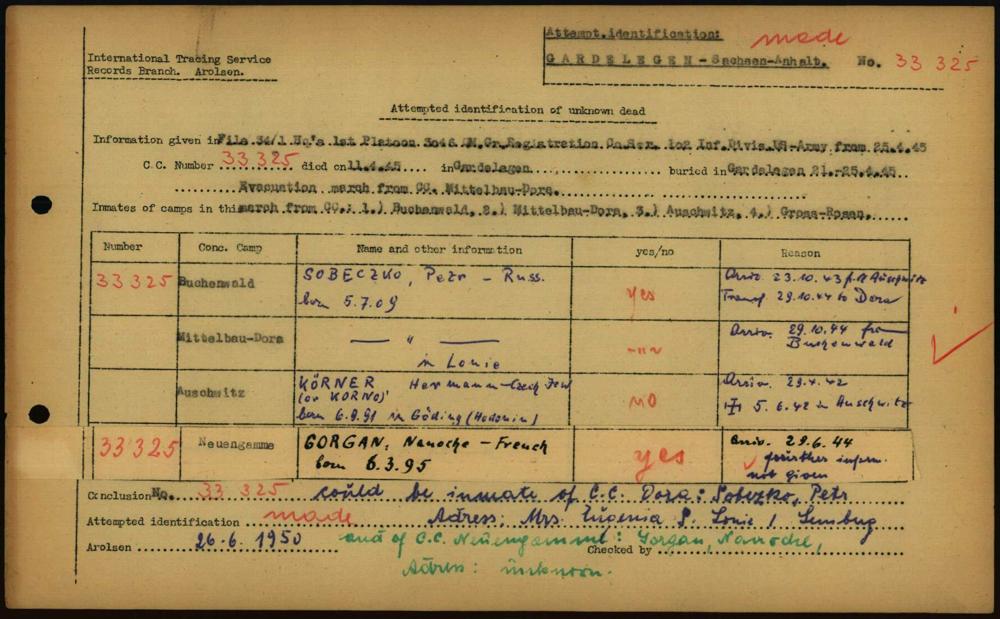 Attempt.identification: made
GARDELEGEN - Sachsen-Anhalt. No. 33 325
International Tracing Service
Records Branch. Arolsen.
Attempted identification of unknown dead
Information given in File 34/1 Hq's 1st Platoon 3046 QM.Gr.Registration Co.Ser. 102 Inf.Divis.US-Army from 25.4.45
C.C. Number 33325 died on 11.4.45 in Gardelegen buried in Gardelegen 21.-25.4.45
Evacuation march from CC. Mittelbau-Dora.
Inmates of camps in this march from CC.: 1.) Buchenwald, 2.) Mittelbau-Dora, 3.) Auschwitz, 4.) Gross-Rosen.
Number Conc. Camp Name and other information yes/no Reason
33325 Buchenwald SOBECZKO, Petr - Russ. born 5.7.09 yes Arriv. 23.10.43 Auschwitz
Transf 29.10.44 to Dora
Mittelbau-Dora — " — in Lonie -"- Arriv. 29.10.44 from Buchenwald
Auschwitz KÖRNER, Hermann - Czech Jew no Arriv. 29.4.42
(or KORNO) born 6.9.91 in Göding (Hodonin) 5.6.42 in Auschwitz
33325 Neuengamme GORGAN, Nanoche - French yes Arriv. 29.6.44
born 6.3.95 further inform. not given
Conclusion No. 33 325 could be inmate of C.C. Dora: Sobezko, Petr
Attempted identification made Adress: Mrs. Eugenia S. Lonie / Lemburg
Arolsen 26.6.1950 and of C.C. Neuengamme: Gorgan, Nanoche,
Checked by
Adress: unknown.